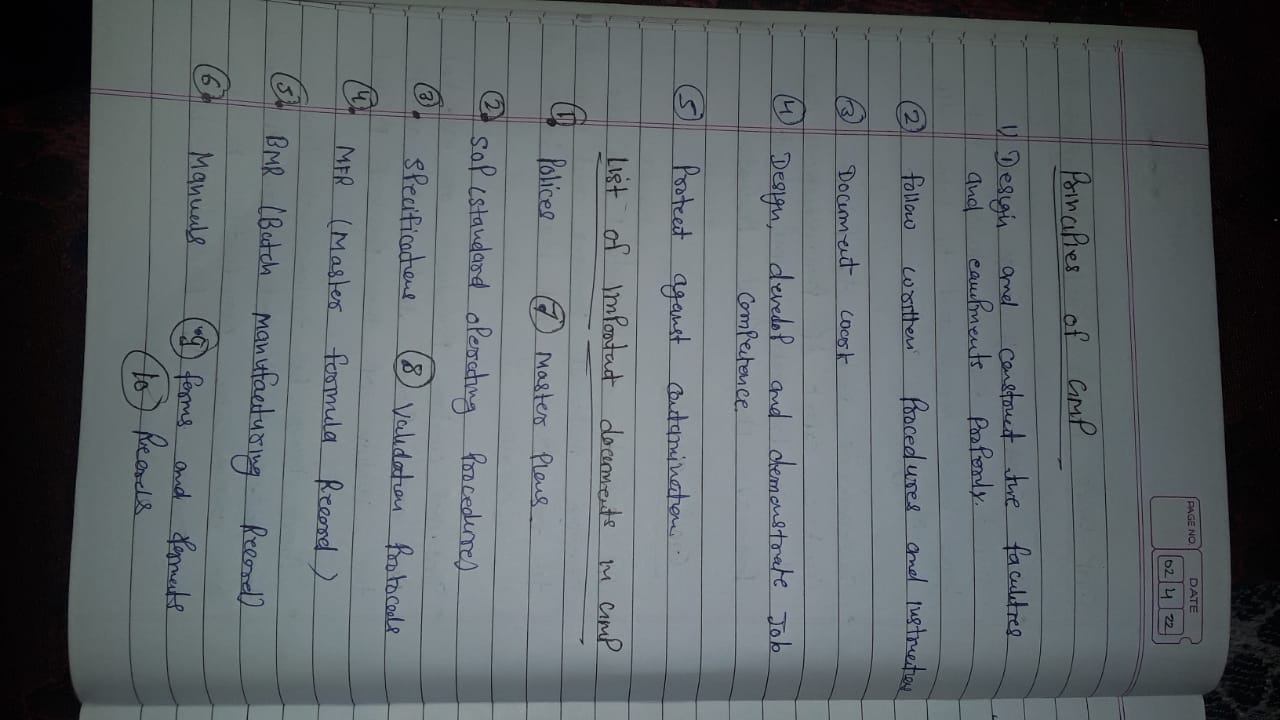 PAGE NO.
DATE
02 4 22
Principles of GMP
1) Design and construct the facilities
and equipments Properly.
2 follow written Procedures and Instructions
3 Document work
4 Design, develop and demonstrate Job
Competence.
5 Protect against contamination.
List of Important documents in GMP
1. Polices 7 Master Plans
2. SOP (Standard operating Procedures)
3. Specifications 8 Validation Protocols
4. MFR (Master formula Record)
5. BMR (Batch manufacturing Record)
6. Manuals 9 forms and formats
10 Records